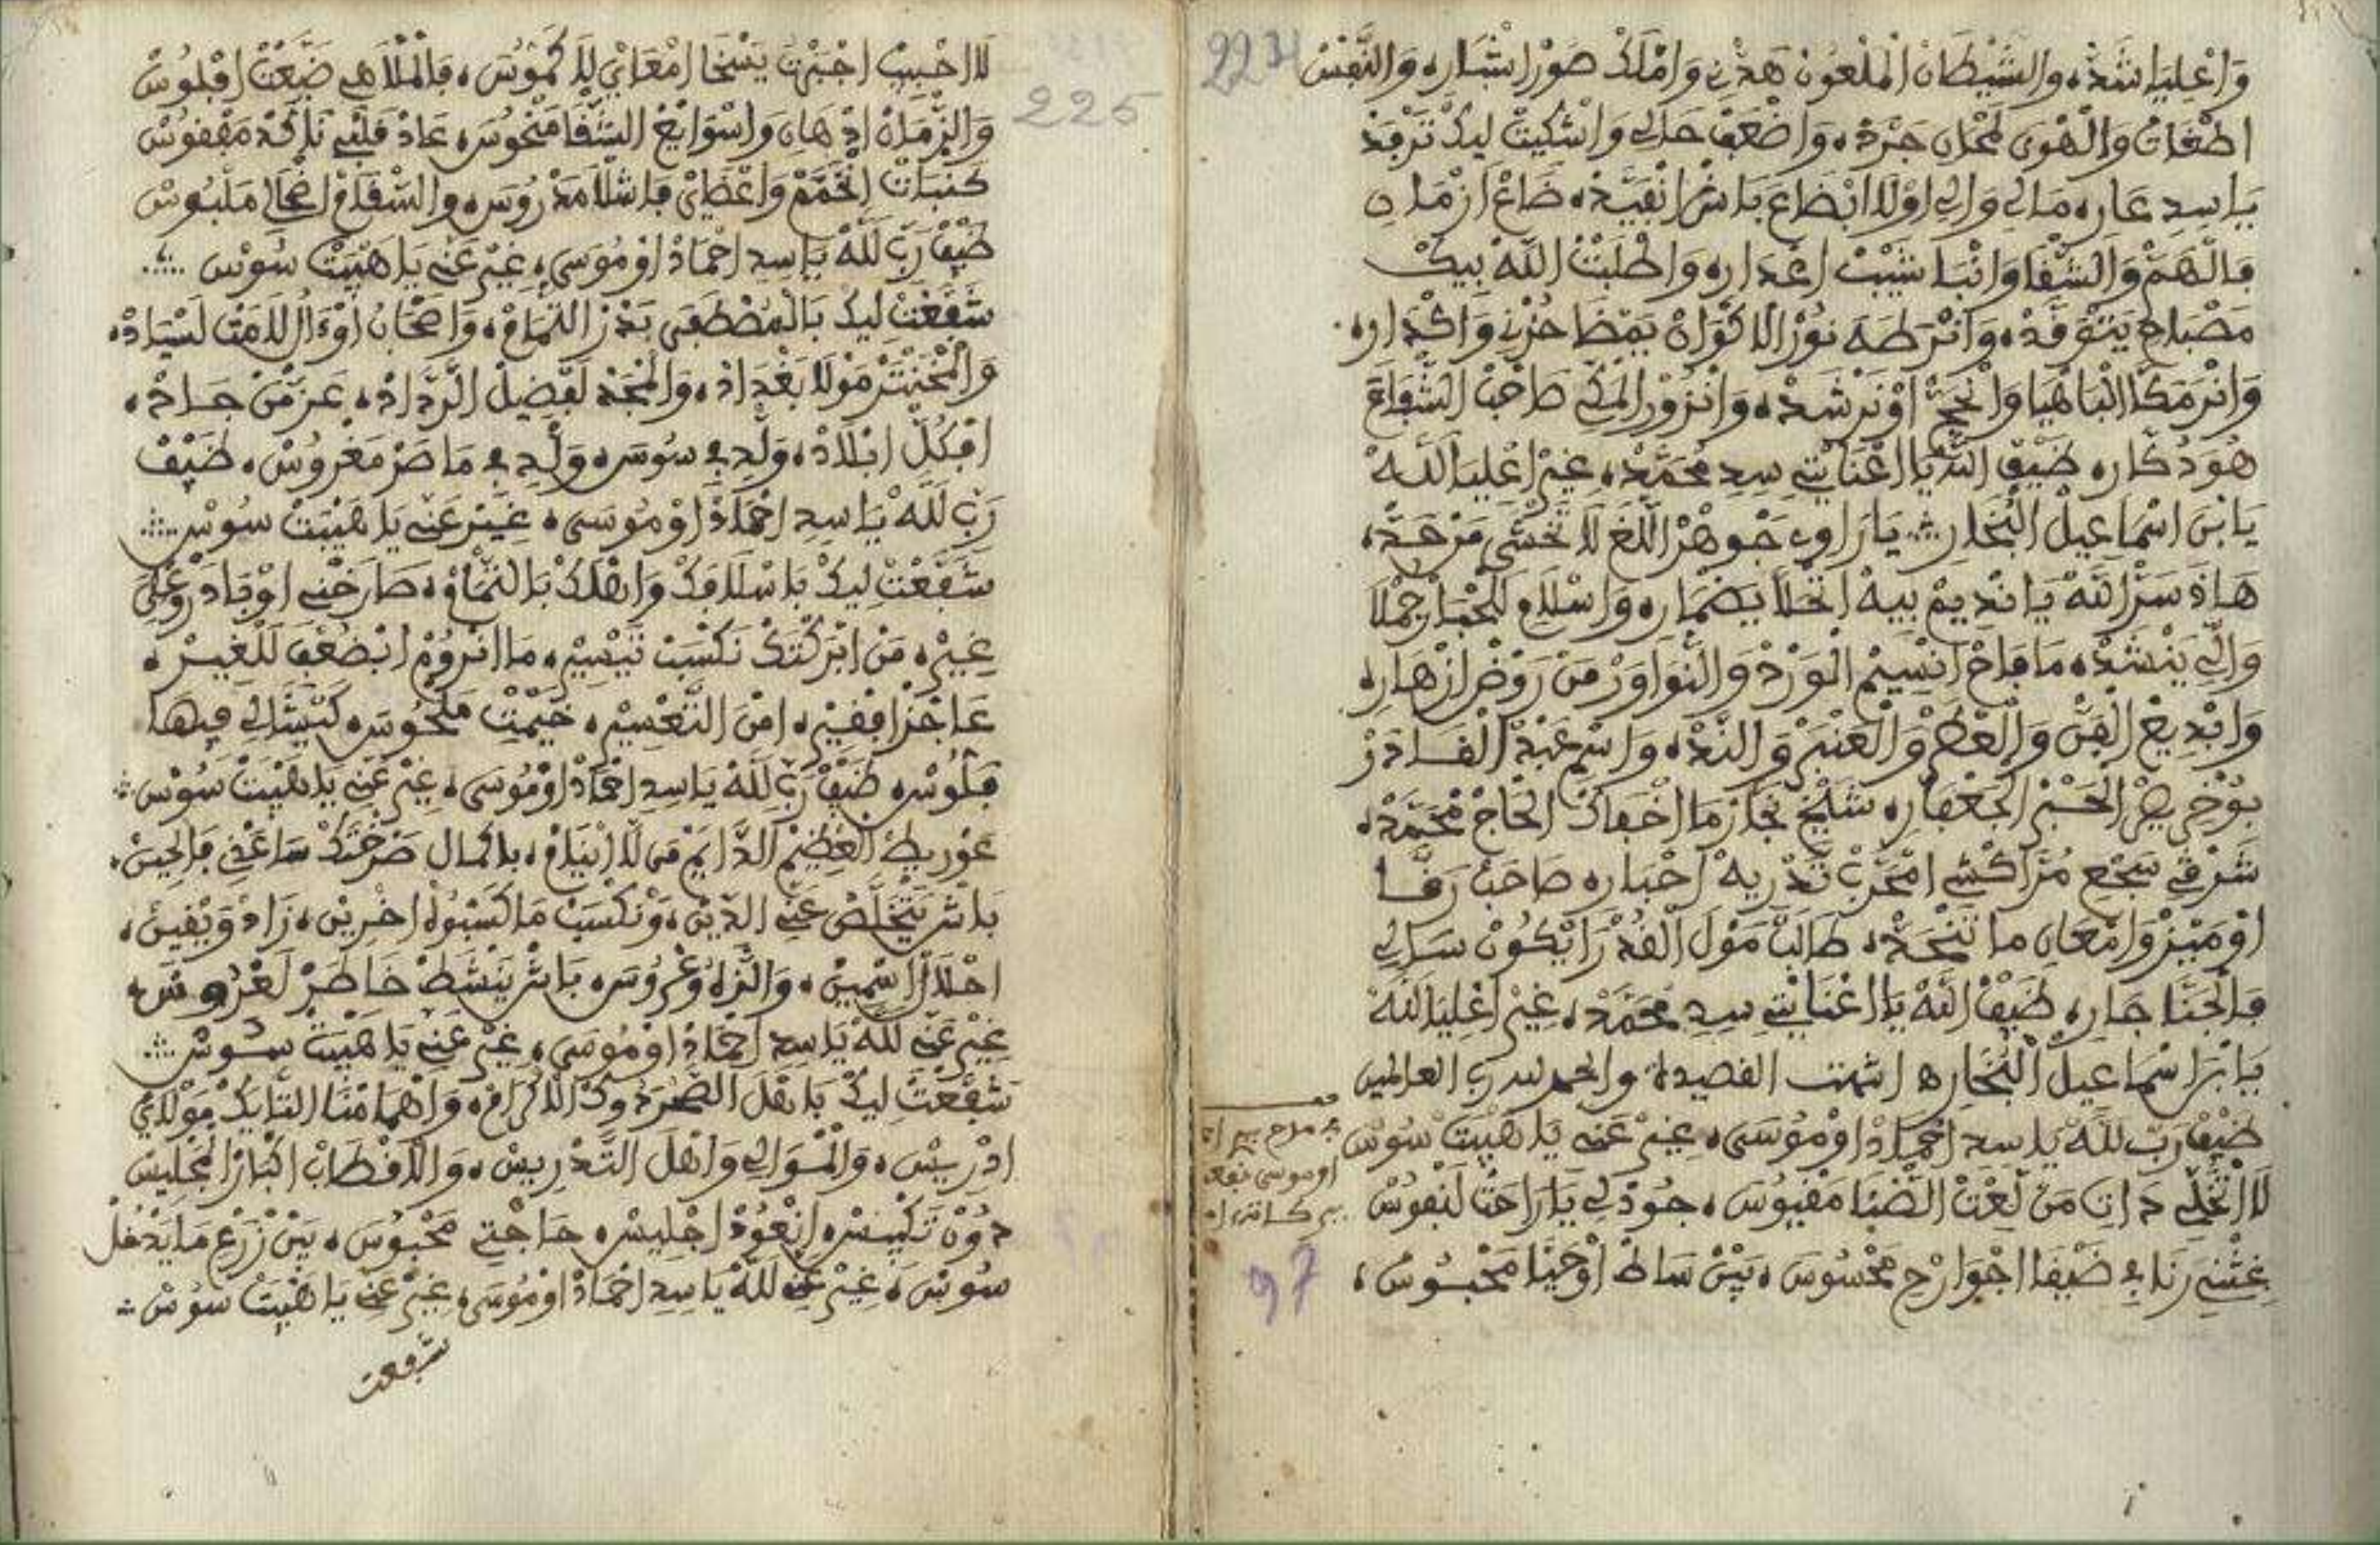 224
وَاعْلِيَا شَدَّ، والشَّيْطَانْ الْمَلْعُونْ هَدْنِي وَامْلَكْ صُورْ اشْبَارِ، وَالنَّفْسْ
اطْغَاتْ وَالْهْوَى لَمْحَانِ جَرَّدْ، وَاضْعَفْ حَالِي وَاشْكِيتْ لِيكْ تَرْفَدْ
يَا سِيدِ عَارِ، مَالِي وَالِي اوْلَا ابْضَاعَ بَاشْ انْفَيَّدْ، ضَاعْ ازْمَانِ
فَالْهَمّْ وَالشّْقَا وَانْبَا شَيَّبْ اعْدَارِ، وَاطْلَبْتْ اللَّهْ بِيكْ
مَصْبَاحِ يَتْوَقَّدْ، وَانْرَ طَهَ نُورْ الَاكْوَانْ يَمْضَا حُزْنِي وَاكْدَارِ،
وَانْرَ مَكَّا الْبَاهْيَا وَانْحَجّْ اوْنَرْشَدْ، وَانْزُورْ الْمَكِّي صَاحْبْ الشّْفَاعَ
هُوَ دُكَّارِ، ضَيْفْ اللَّهْ يَا اعْنَايْتِي سِيدِ مُحَمَّدْ، غِيرْ اعْلِيَا اللَّهْ
يَا بْنَ اسْمَاعِيلْ الْبُخَارِ ∴ يَا رَاوِي جَوْهَرْ اللّْغَ لَا تَخْشَى مَنْ حَدّْ،
هَاذَ سَرّْ اللَّهْ يَا نْدِيمْ بِيهْ اتْحَلَّا يَضْمَارِ، وَاسْلَامِ لَلْحْبَارْ جُمْلَا
وَالِّي يَنْشَدْ، مَا فَاحْ انْسِيمْ الْوَرْدْ وَالنّْوَاوَرْ مَنْ رَوْضْ ازْهَارِ،
وَابْدِيعْ الْفَنّْ وَالْعْطَرْ وَالْعَنْبَرْ وَالنَّدّْ، وَاسْمِ عَبْدْ الْقَادَرْ
بُوخْرِيصْ الْحَبْرْ الْجَعْفَارِ، شَيْخْ نْجَازْ مَا اخْفَاكْ الْحَاجْ مْحَمَّدْ،
شَرْقِي سَجْعِ مُرَّاكْشِي امْجَرَّبْ تَدْرِيهْ احْبَارِ، صَاحَبْ رَقَّا
اوْمَيْزْ وَامْعَانِ مَا تَنْحَدّْ، طَالَبْ مَوْلَ الْقُدْرَا يْكُونْ سَالِي
فَالْجَنَّا جَارِ، ضَيْفْ اللَّهْ يَا اعْنَايْتِي سِيدِ مْحَمَّدْ، غِيرْ اعْلِيَا اللَّهْ
يَا بْنَ اسْمَاعِيلْ الْبُخَارِ ه انتهت القصيدة والحمد لله رب العالمين
ضَيْفْ رَبّْ لَلَّهْ يَا سِيدِ احْمَادْ اوْمُوسَى، غِيرْ عَنِّي يَا هِيبَتْ سُوسْ
لَا اتْخَلِّي دَاتِ مَنْ لَعْتْ الضّْنَا مَفْيُوسَ، جُودْ لِي يَا رَاحَتْ لَنْفُوسْ
غِشْنِي رَنَا فِي ضَيْقَا اجْوَارْحِ مَحْسُوسَ، بَيْنْ سَاطْ اوْحَيْنَا مَحْبُوسْ،
97
225
لَا احْبِيبْ اجْبَرْتْ يَسْخَا امْعَايْ لَا كَمُّوسَ، فَالْمْلَاهِي ضَيَّعْتْ افْلُوسْ
وَالزّْمَانْ ادْهَانِ وَاسْوَايَعْ الشّْقَا مَنْحُوسَ، عَادْ قَلْبِي نَاكَدْ مَقْفُوسْ
كَنْبَاتْ انْخَمَّمْ وَاعْضَايْ فَاشْلَا مَدْرُوسَ، والسّْقَامْ اضْحَالِي مَلْبُوسْ
ضَيْفْ رَبّْ لَلَّهْ يَا سِيدِ احْمَادْ اوْمُوسَى، غِيرْ عَنِّي يَا هِيبَتْ سُوسْ ∴
شَفَّعْتْ لِيكْ بَالْمُصْطَفَى بَدْرْ التّْمَامْ، وَاصْحَابُ اوْءَالْ لَامَتْ لَسْيَادْ،
وَالْمْجَنْتَرْ مَوْلَا بَغْدَادْ، وَالْمْجَدْ لَفْضِيلْ الرَّدَّادْ، عَزّْ مَنْ جَادْ،
افْكُلّْ ابْلَادْ، وَلِّدِ فِي سُوسَ، وَلِّدِ فِي مَاصَرْ مَغْرُوسْ، ضَيْفْ
رَبّْ لَلَّهْ يَا سِيدِ احْمَادْ اوْمُوسَى، غِيرْ عَنِّي يَا هِيبَتْ سُوسْ ∴
شَفَّعْتْ لِيكْ بَاسْلَافَكْ وَاهْلَكْ بَالتّْمَامْ، صَارَخْنِي اوْبَادَرْ وَعْلِيَّ
غِيرْ، مَنْ ابْرَكْتَكْ نَكْسَبْ تَيْسِيرْ، مَا انْرُومْ ابْضُعْفِ لَلْغِيرْ،
عَاجْزْ افْقِيرْ، امْنَ التَّعْسِيرْ، خَيْمْتِ مَلْحُوسَ، كَتْشَالِي فِيهَا
فَلُّوسْ، ضَيْفْ رَبّْ لَلَّهْ يَا سِيدِ احْمَادْ اوْمُوسَى، غِيرْ عَنِّي يَا هِيبَتْ سُوسْ ∴
عَوْرِيطْ الْعْظِيمْ الدَّايَمْ مَنْ لَا ايْنَامْ، بَاكْمَالْ صَرْخْتَكْ سَاعَدْنِي فَالْحِينْ،
بَاشْ يَتْخَلَّصْ عَنِّي الدِّينْ، وَنْكَسَبْ مَا كَسْبُوا اخْرِينْ، زَادْ وَيْقِينْ،
احْلَالْ اسْمِينْ، وَالنّْزَاهْ وَعْرُوسَ، بَاشْ يَنْشَطْ خَاطَرْ لَعْرُوسْ،
غِيرْ عَنِّي لَلَّهْ يَا سِيدِ احْمَادْ اوْمُوسَى، غِيرْ عَنِّي يَا هِيبَتْ سُوسْ ∴
شَفَّعْتْ لِيكْ بَاهْلَ الصّْحْرَ وَذُوكْ الَاكْرَامْ، وَاهْمَامْنَا التَّايَكْ مَوْلَايْ
ادْرِيسْ، وَالْمْوَالِي وَاهْلَ التَّدْرِيسْ، وَالَاقْطَابْ اكْبَارْ الْمَجْلِيسْ
دُونْ تَكْيِيسْ، انْعُودْ اجْلِيسْ، حَاجْتِي مَحْبُوسَ، بَيْنْ زَرْعْ مَا يَدْخُلْ
سُوسْ، غِيرْ عَنِّي لَلَّهْ يَا سِيدِ احْمَادْ اوْمُوسَى، غِيرْ عَنِّي يَا هِيبَتْ سُوسْ ∴
شفعت